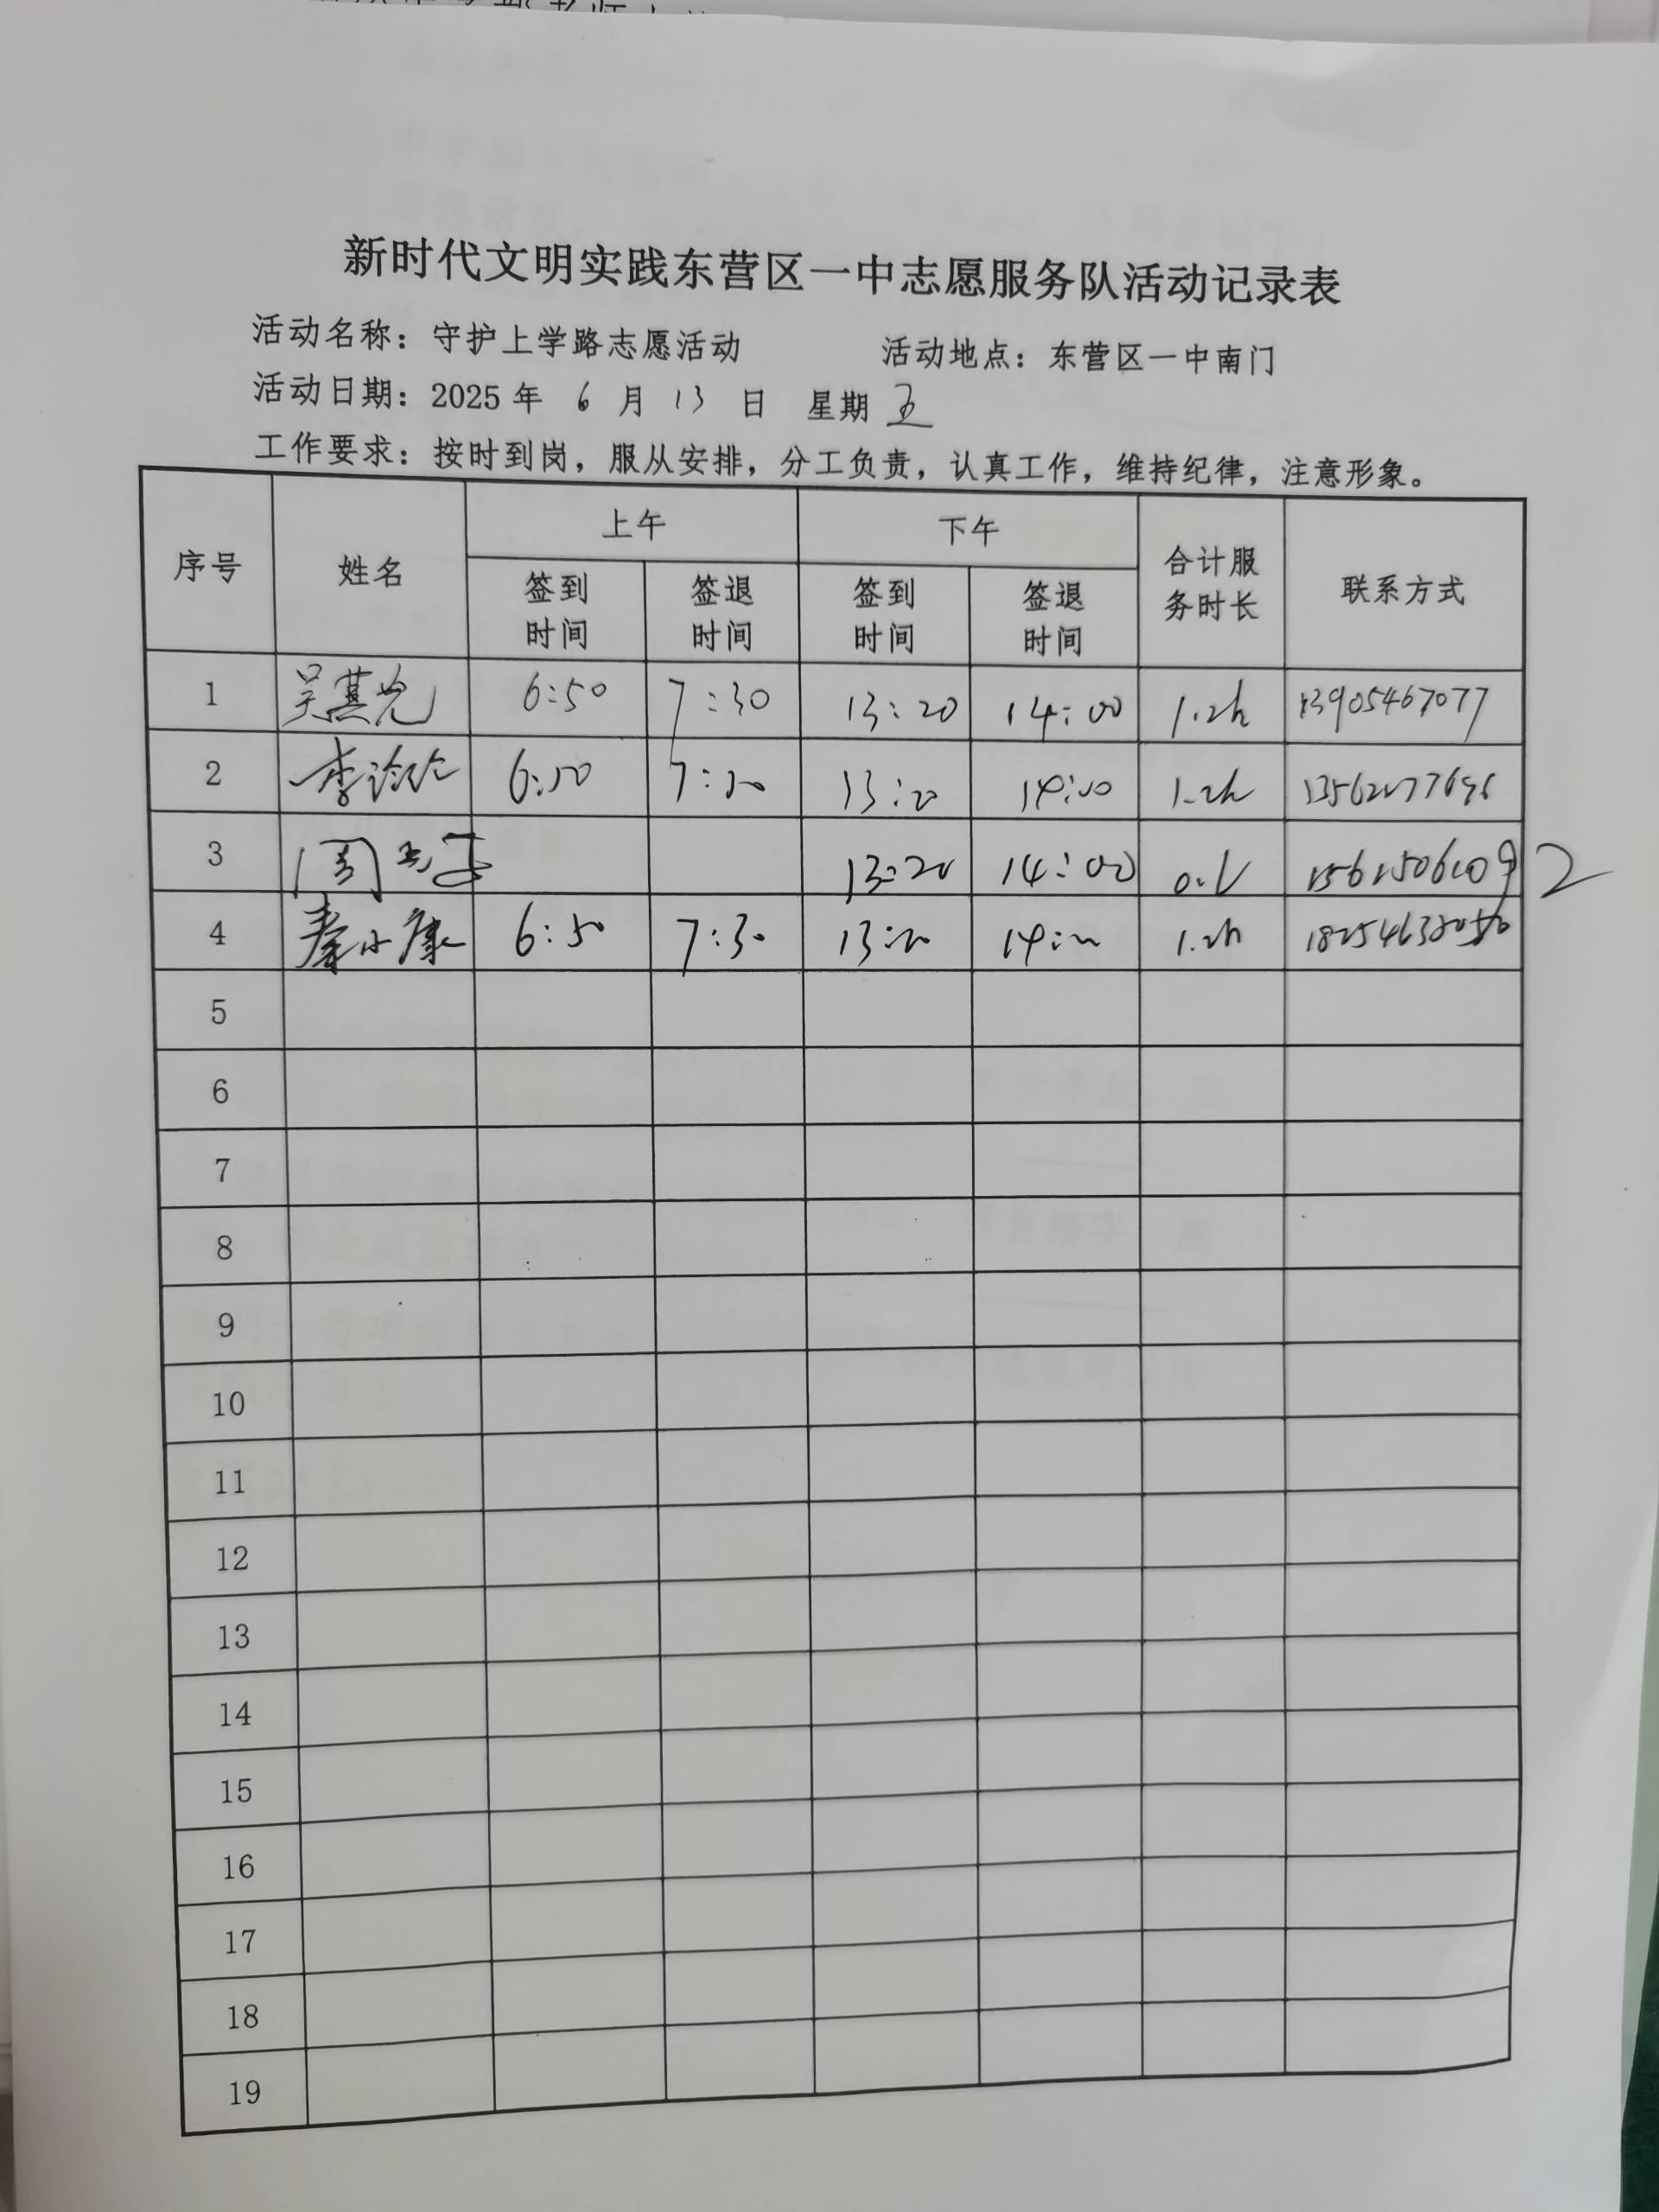 新时代文明实践东营区一中志愿服务队活动记录表
活动名称：守护上学路志愿活动 活动地点：东营区一中南门
活动日期：2025 年 6 月 13 日 星期 五
工作要求：按时到岗，服从安排，分工负责，认真工作，维持纪律，注意形象。
序号 姓名 上午 下午 合计服务时长 联系方式
签到时间 签退时间 签到时间 签退时间
1 6:50 7:30 13:20 14:00 1.2h 13905467077
2 13:20 14:00 1.2h
3 周 13:20 14:00
4 秦小康 6:50 7:30 13:20 14:00 1.2h
5
6
7
8
9
10
11
12
13
14
15
16
17
18
19